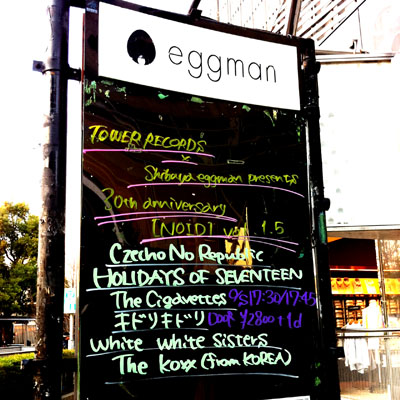 eggman
TOWER RECORDS
×
Shibuya eggman presents
30th anniversary
[NOID] vol. 1.5
Czecho No Republic
HOLIDAYS OF SEVENTEEN
The Cigavettes 0/S17:30/17:45
キドリキドリ Door ¥2800+1d
White White Sisters
The Koxx (from KOREA)